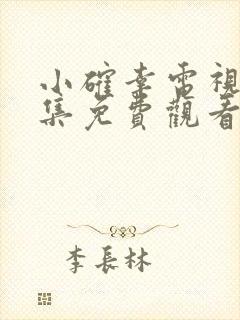 小確幸電視
集免費觀看
李長林